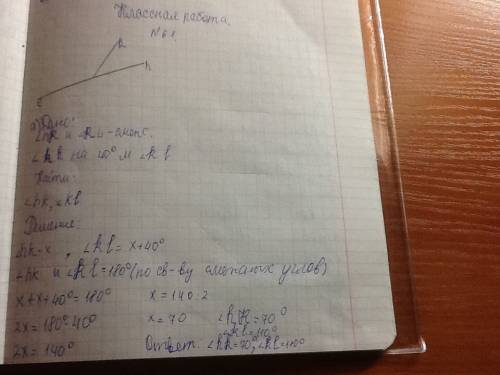 Классная работа.
№61.
k
h
l
а) Дано:
∠hk и ∠kl - смеж.
∠hk на 40° м ∠kl
Найти:
∠hk, ∠kl
Решение:
∠hk-x, ∠kl = x+40°
∠hk и ∠kl = 180° (по св-ву смежных углов)
x+x+40°=180° x = 140:2
2x=180°-40° x = 70 ∠hk = 70°
∠kl=110°
2x = 140° Ответ: ∠hk=70°, ∠kl=110°